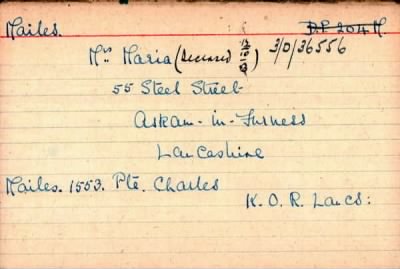 Mailes. D.P. 204 M.
Mrs Maria (deceased 12/10/53) 3/0/36556
55 Steel Street
Askam-in-Furness
Lancashire
Mailes. 1553. Pte. Charles
K. O. R. Lancs: